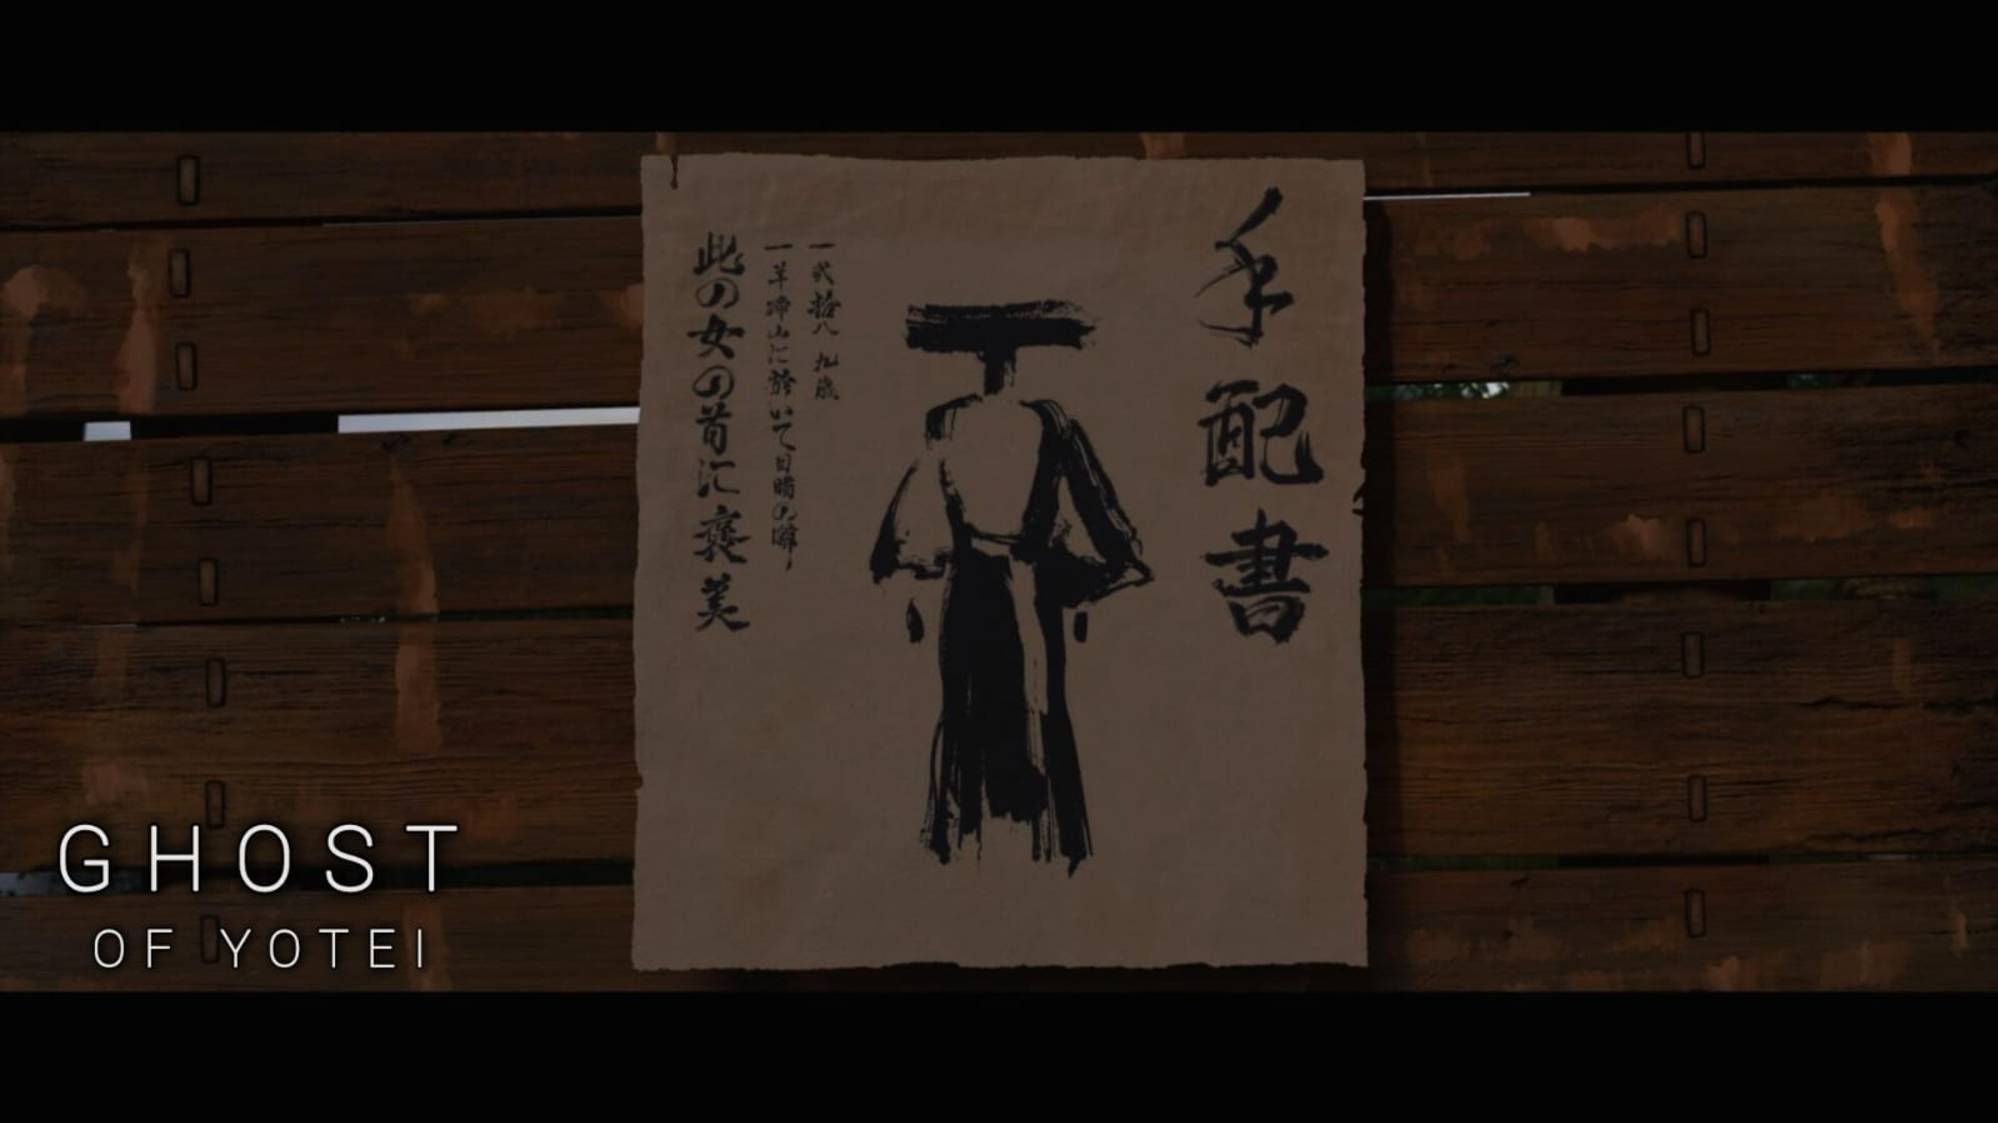 手配書
一 弐拾八 九歳
一 羊蹄山に於いて目睹の噂
此の女の首に褒美
GHOST
OF YOTEI